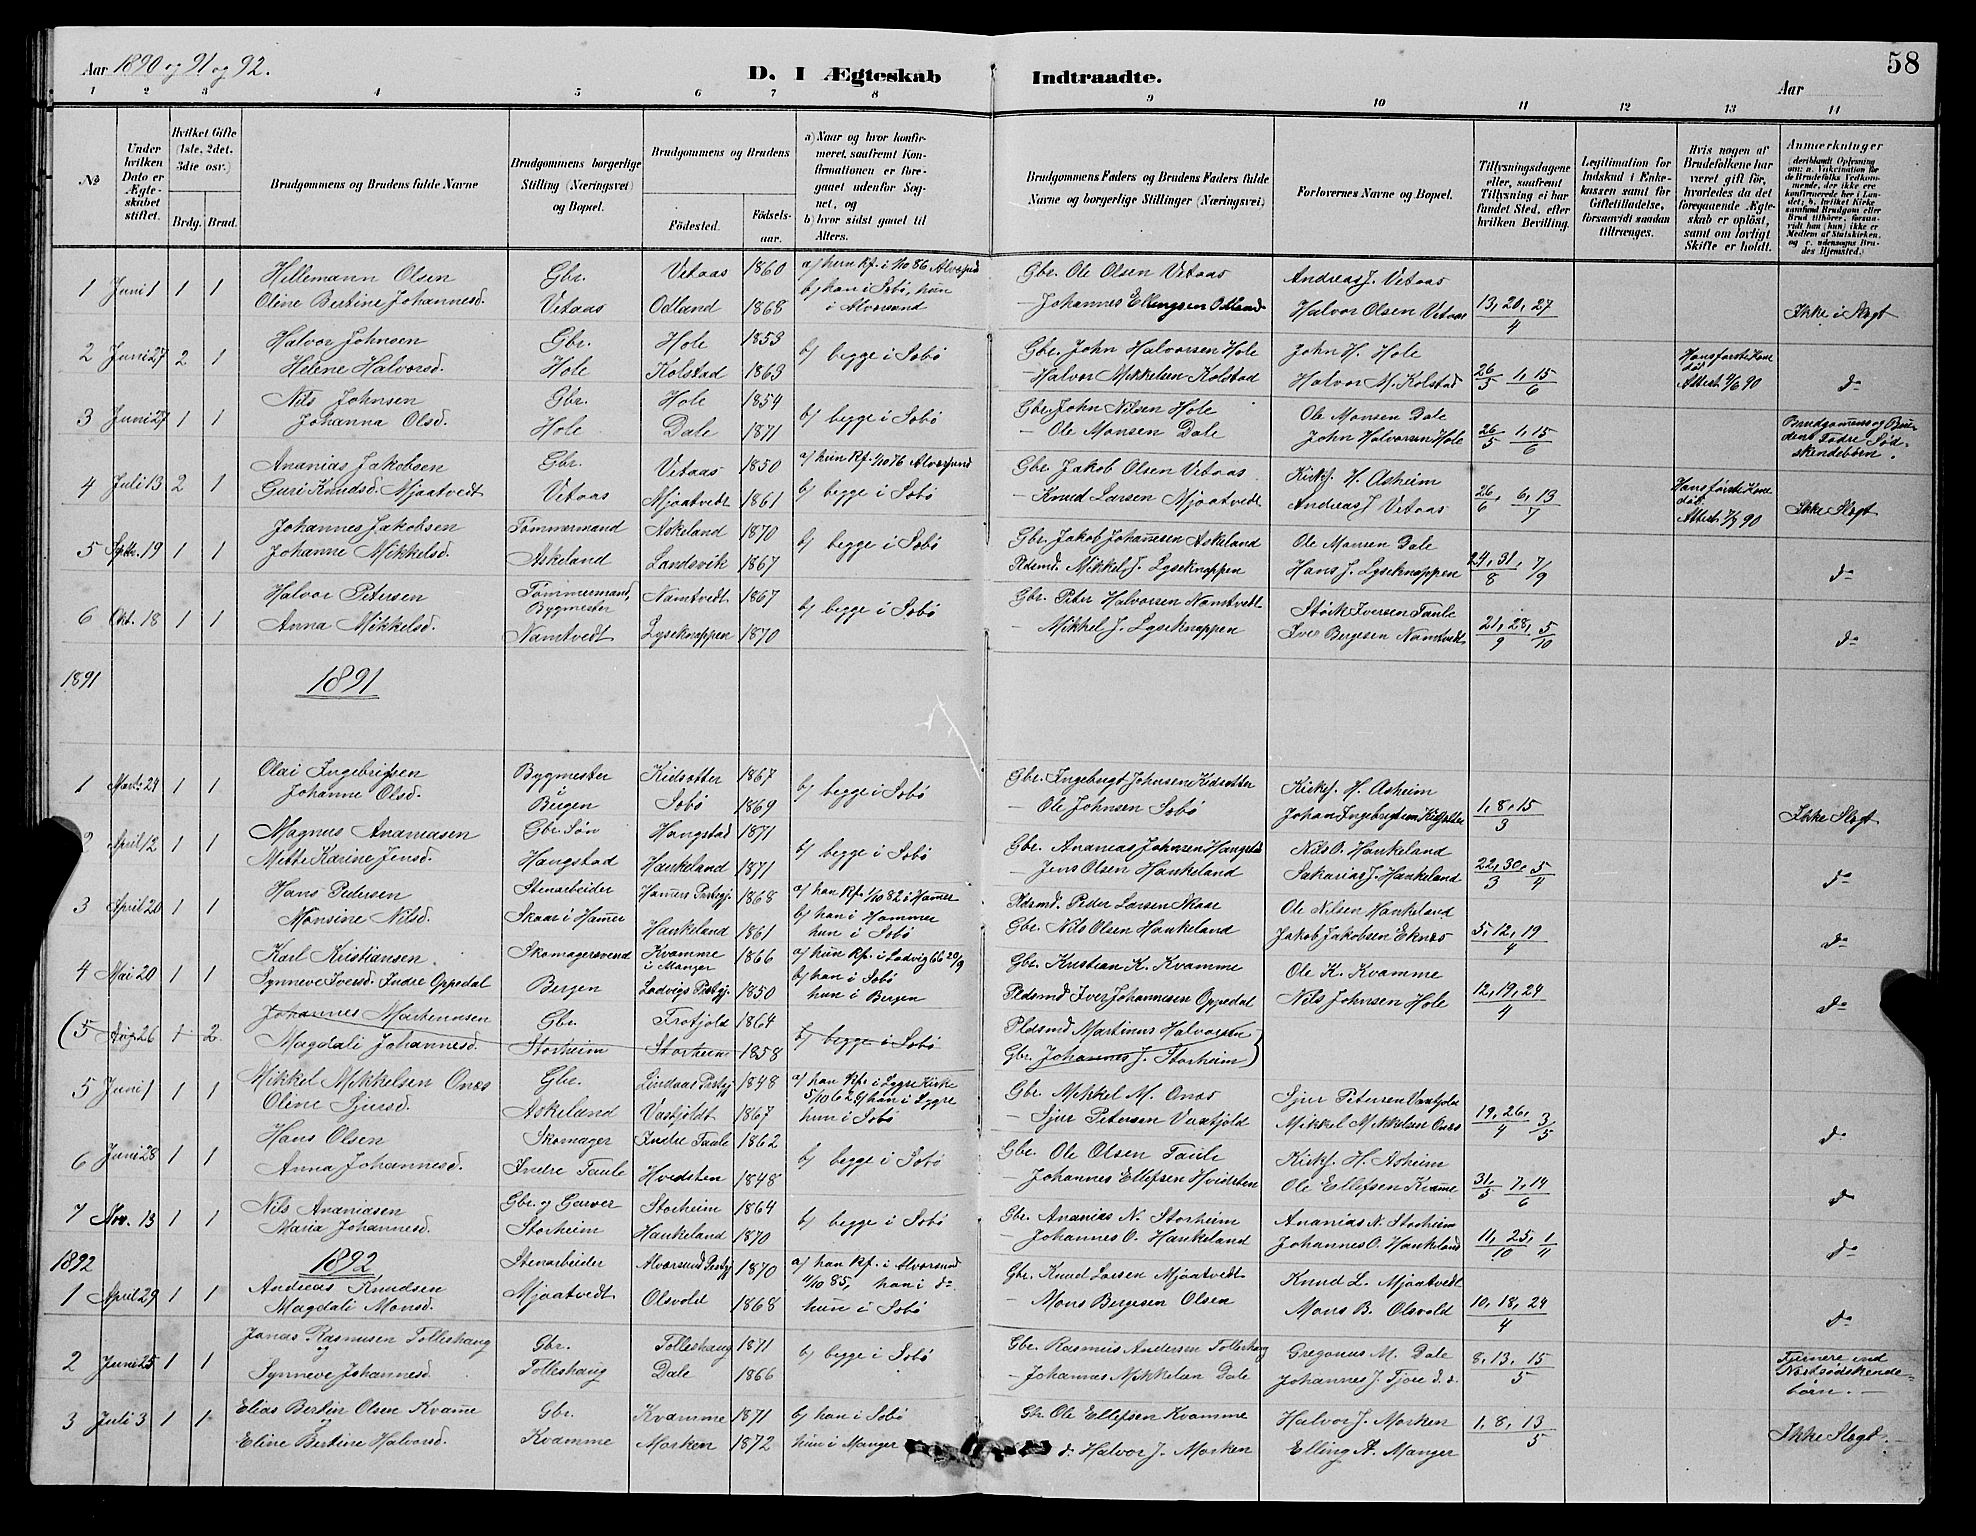 Aar 1890 og 91 og 92.
D. I Ægteskab Indtraadte.
Aar
58
1 2 3 4 5 6 7 8 9 10 11 12 13 14
№
Under hvilken Dato er Ægteskabet stiftet.
Hvilket Gifte (1ste, 2det, 3die osv.)
Brdg. Brud.
Brudgommens og Brudens fulde Navne
Brudgommens borgerlige Stilling (Næringsvei) og Bopæl.
Brudgommens og Brudens
Fødested. Fødsels-aar.
a) Naar og hvor konfirmeret, saafremt Konfirmationen er foregaaet udenfor Sognet, og
b) hvor sidst gaaet til Alters.
Brudgommens Faders og Brudens Faders fulde Navne og borgerlige Stillinger (Næringsvei)
Forlovernes Navne og Bopæl.
Tillysningsdagene eller, saafremt Tillysning ei har fundet Sted, efter hvilken Bevilling.
Legitimation for Indskud i Enkekassen samt for Giftetilladelse, forsaavidt saadan tiltrænges.
Hvis nogen af Brudefolkene har været gift før, hvorledes da det foregaaende Ægteskab er opløst, samt om lovligt Skifte er holdt.
Anmærkninger
(deriblandt Oplysning om: a. Vakcination for de Brudefolks Vedkommende, der ikke ere konfirmerede her i Landet; b. hvilket Kirkesamfund Brudgom eller Brud tilhører, forsaavidt han (hun) ikke er Medlem af Statskirken, og c. udensogns Brudes Hjemsted.)
1 Juni 1 1 1 Hillemann Olsen Gbr. Vetaas 1860 a) hun Kf. i 1/10 86 Alversund Gbr. Ole Olsen Vetaas Andreas J. Vetaas
Oline Bertine Johannesd. Vetaas Odland 1868 b) han i Sæbø, hun i Alversund — Johannes Ellingsen Odland Halvor Olsen Vetaas 13, 20, 27/4 Ikke i Slægt
2 Juni 27 2 1 Halvor Johnsen Gbr. Hole 1853 b) begge i Sæbø Gbr. John Halvorsen Hole John H. Hole Hans første Kone død
Helene Halvorsd. Hole Kolstad 1863 — Halvor Mikkelsen Kolstad Halvor M. Kolstad 26/5 1, 15/6 Attest 4/6 90 do
3 Juni 27 1 1 Nils Johnsen Gbr. Hole 1854 b) begge i Sæbø Gbr. John Nilsen Hole Ole Monsen Dale
Johanna Olsd. Hole Dale 1871 — Ole Monsen Dale John Halvorsen Hole 26/5 1, 15/6 Brudgomens og Brudens Fædre Sødskendebørn.
4 Juli 13 2 1 Ananias Jakobsen Gbr. Vetaas 1850 a) hun Kf. 1/10 76 Alversund Gbr. Jakob Olsen Vetaas Kirkes. H. Asheim Hans første Kone død
Guri Knudsd. Mjaatvedt Vetaas Mjaatvedt 1861 b) begge i Sæbø — Knud Larsen Mjaatvedt Andreas J. Vetaas 26/6, 6, 13/7 Attest 7/7 90 Ikke Slægt
5 Septbr. 19 1 1 Johannes Jakobsen Tømmermand Askeland 1870 b) begge i Sæbø Gbr. Jakob Johannesen Askeland Ole Monsen Dale
Johanne Mikkelsd. Askeland Landsvik 1867 Pldsmd. Mikkel J. Lyseknappen Hans J. Lyseknappen 24, 31/8, 7/9 do
6 Okt. 18 1 1 Halvor Petersen Tømmermand, Bygmester Namtvedt 1867 b) begge i Sæbø Gbr. Peter Halvorsen Namtvedt Størk Iversen Taule
Anna Mikkelsd. Namtvedt Lyseknappen 1870 — Mikkel J. Lyseknappen Iver Bergesen Namtvedt 21, 28/9, 5/10 do
1891 1891
1 Marts 24 1 1 Olai Ingebrigtsen Bygmester Kidsætter 1867 b) begge i Sæbø Gbr. Ingebrigt Johnsen Kidsætter Kirkes. H. Asheim
Johanne Olsd. i Bergen Sæbø 1869 — Ole Johnsen Sæbø Johan Ingebrigtsen Kidsætter 1, 8, 15/3 Ikke Slægt
2 April 12 1 1 Magnus Ananiasen Gbr. Søn Hangstad 1871 b) begge i Sæbø Gbr. Ananias Johnsen Hangstad Nils O. Hankeland
Mette Karine Jensd. Hangstad Hankeland 1871 — Jens Olsen Hankeland Sakarias J. Hankeland 22, 30/3, 5/4 do
3 April 20 1 1 Hans Pedersen Stenarbeider Hamers Præstgj. 1868 a) han Kf. 1/10 82 i Hamer Pldsmd. Peder Larsen Skaar Ole Nilsen Hankeland
Monsine Nilsd. Skaar i Hamer Hankeland 1861 b) han i Hammer hun i Sæbø Gbr. Nils Olsen Hankeland Jakob Jakobsen Eknæs 5, 12, 19/4 do
4 Mai 20 1 1 Karl Kristiansen Skomagersvend Kvamme i Manger 1866 a) hun Kf. i Ladvig 66 20/9 Gbr. Kristian K. Kvamme Ole K. Kvamme
Synneve Iversd. Indre Oppedal Bergen Ladvigs Præstgj. 1850 b) han i Sæbø hun i Bergen Pldsmd Iver Johannesen Oppedal Nils Johnsen Hole 12, 19, 24/4 do
(5 Aug 26 1 2 Johannes Martinusen Gbr. Trotjold 1864 b) begge i Sæbø Pldsmd Martinus Halvorsen
Magdali Johannesd. Storheim Storheim 1858 Gbr. Johannes J. Storheim)
5 Juni 1 1 1 Mikkel Mikkelsen Onæs Gbr. Lindaas Præstgj 1848 a) han Kf. i Lygre Kirke 5/10 62 b) han i Lygre Gbr. Mikkel M. Onæs Sjur Petersen Vaxtjold
Oline Sjursd. Askeland Vastjoldt 1867 hun i Sæbø — Sjur Petersen Vaxtjold Mikkel Mikkelsen Onæs 19, 26/4, 3/5 do
6 Juni 28 1 1 Hans Olsen Skomager Indre Taule 1862 b) begge i Sæbø Gbr. Ole Olsen Taule Kirkes. H. Asheim
Anna Johannesd. Indre Taule Hvedsten 1848 — Johannes Ellefsen Hvidsten Ole Ellefsen Kvame 31/5, 7, 14/6 do
7 Nov. 13 1 1 Nils Ananiasen Gbr. og Garver Storheim 1864 b) begge i Sæbø Gbr. Ananias N. Storheim Ananias N. Storheim
Maria Johannesd. Storheim Hankeland 1870 — Johannes O. Hankeland Johannes O. Hankeland 11, 25/10, 1/11 do
1892 1892
1 April 29 1 1 Andreas Knudsen Stenarbeider Alversund Præstgj 1870 a) han Kf. i Alversund 4/10 85, han i do Gbr. Knud Larsen Mjaatvedt Knud L. Mjaatvedt
Magdali Monsd. Mjaatvedt Olsvold 1868 hun i Sæbø — Mons Bergesen Olsen Mons B. Olsvold 10, 18, 24/4 do
2 Juni 25 1 1 Jonas Rasmusen Tolleshaug Gbr. Tolleshaug 1871 b) begge i Sæbø Gbr. Rasmus Andersen Tolleshaug Gregorius M. Dale 8, 13, 15/5 Fjernere end Næstsødskendebørn. —
og Synneve Johannesd. Tolleshaug Dale 1866 — Johannes Mikkelsen Dale Johannes J. Fjore d. d.
3 Juli 3 1 1 Elias Bertin Olsen Kvame Gbr. Kvamme 1871 b) han i Sæbø Gbr Ole Ellefsen Kvamme Halvor J. Morken 1, 8, 13/5
og Eline Bertine Halvorsd. Kvamme Morken 1872 hun i Manger do Halvor J. Morken Elling A. Manger Ikke Slægt.